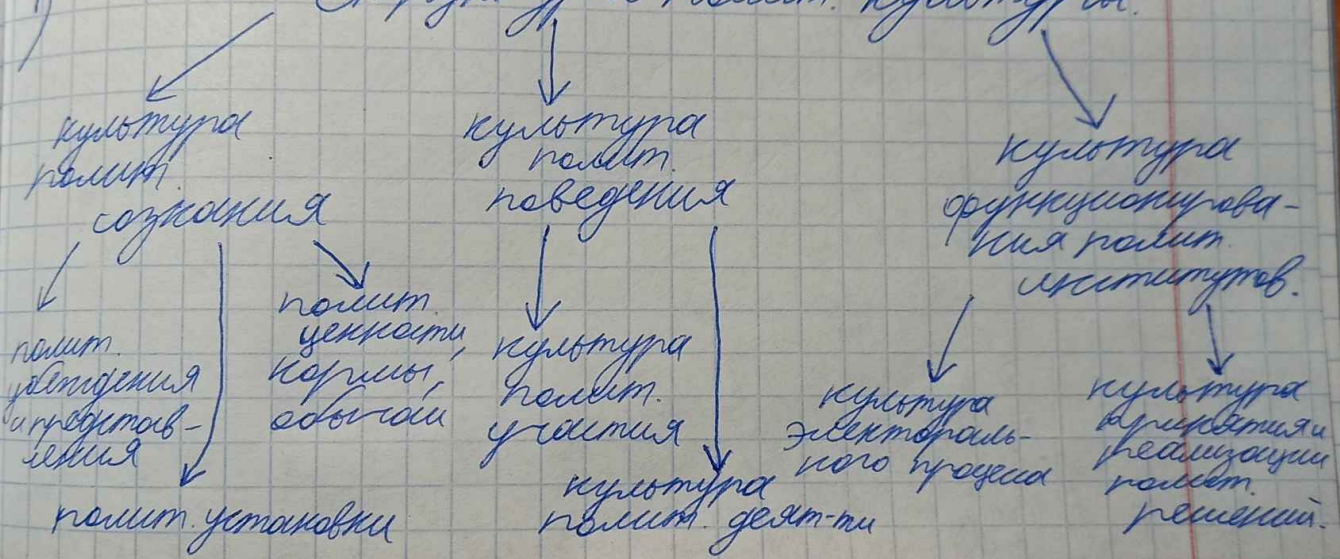 1) Структура полит. культуры.
культура
полит.
сознания
культура
полит.
поведения
культура
функционирова-
ния полит.
институтов.
полит.
убеждения
и представ-
ления
полит. установки
полит.
ценности,
нормы,
обычаи
культура
полит.
участия
культура
полит. деят-ти
культура
электораль-
ного процесса
культура
принятия и
реализации
полит.
решений.